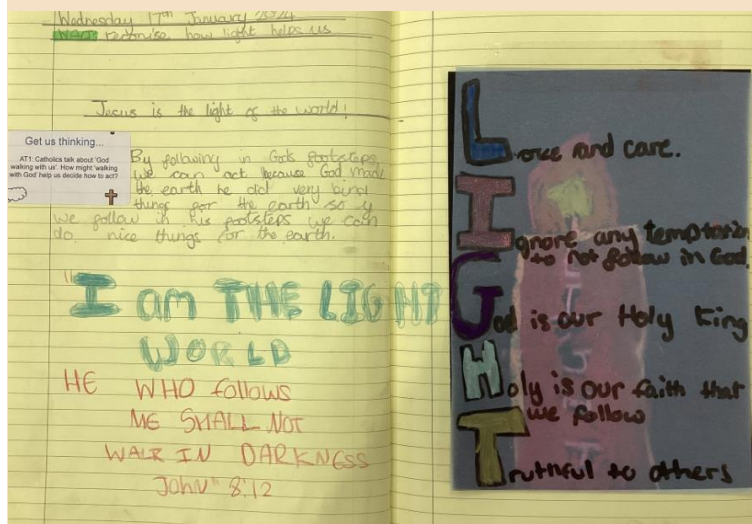 Wednesday 17th January 2024
WALT: recognise how light helps us
Jesus is the light of the world!
Get us thinking...
AT1: Catholics talk about 'God
walking with us'. How might 'walking
with God' help us decide how to act?
By following in Gods footsteps
we can act because God made
the earth he did very kind
things for the earth so if
we follow in his footsteps we can
do nice things for the earth.
"I am THE LIGHT
WORLD
HE WHO follows
ME SHALL NOT
WALK IN DARKNESS
John 8:12
Love and care.
Ignore any temptation
to not follow in God.
God is our Holy King
Holy is our faith that
we follow
Truthful to others